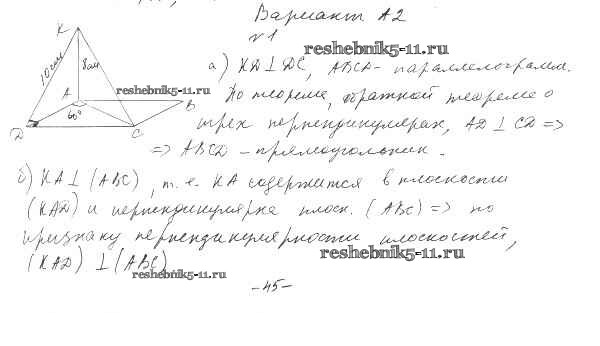 Вариант А2
№1
reshebnik5-11.ru
K
10см
8см
A
reshebnik5-11.ru
B
60°
D
C
а) KD ⊥ DC, ABCD - параллелограмм.
По теореме, обратной теореме о
трех перпендикулярах, AD ⊥ CD =>
=> ABCD - прямоугольник.
б) KA ⊥ (ABC), т.е. KA содержится в плоскости
(KAD) и перпендикулярна плоск. (ABC) => по
признаку перпендикулярности плоскостей,
reshebnik5-11.ru
(KAD) ⊥ (ABC)
reshebnik5-11.ru
-45-